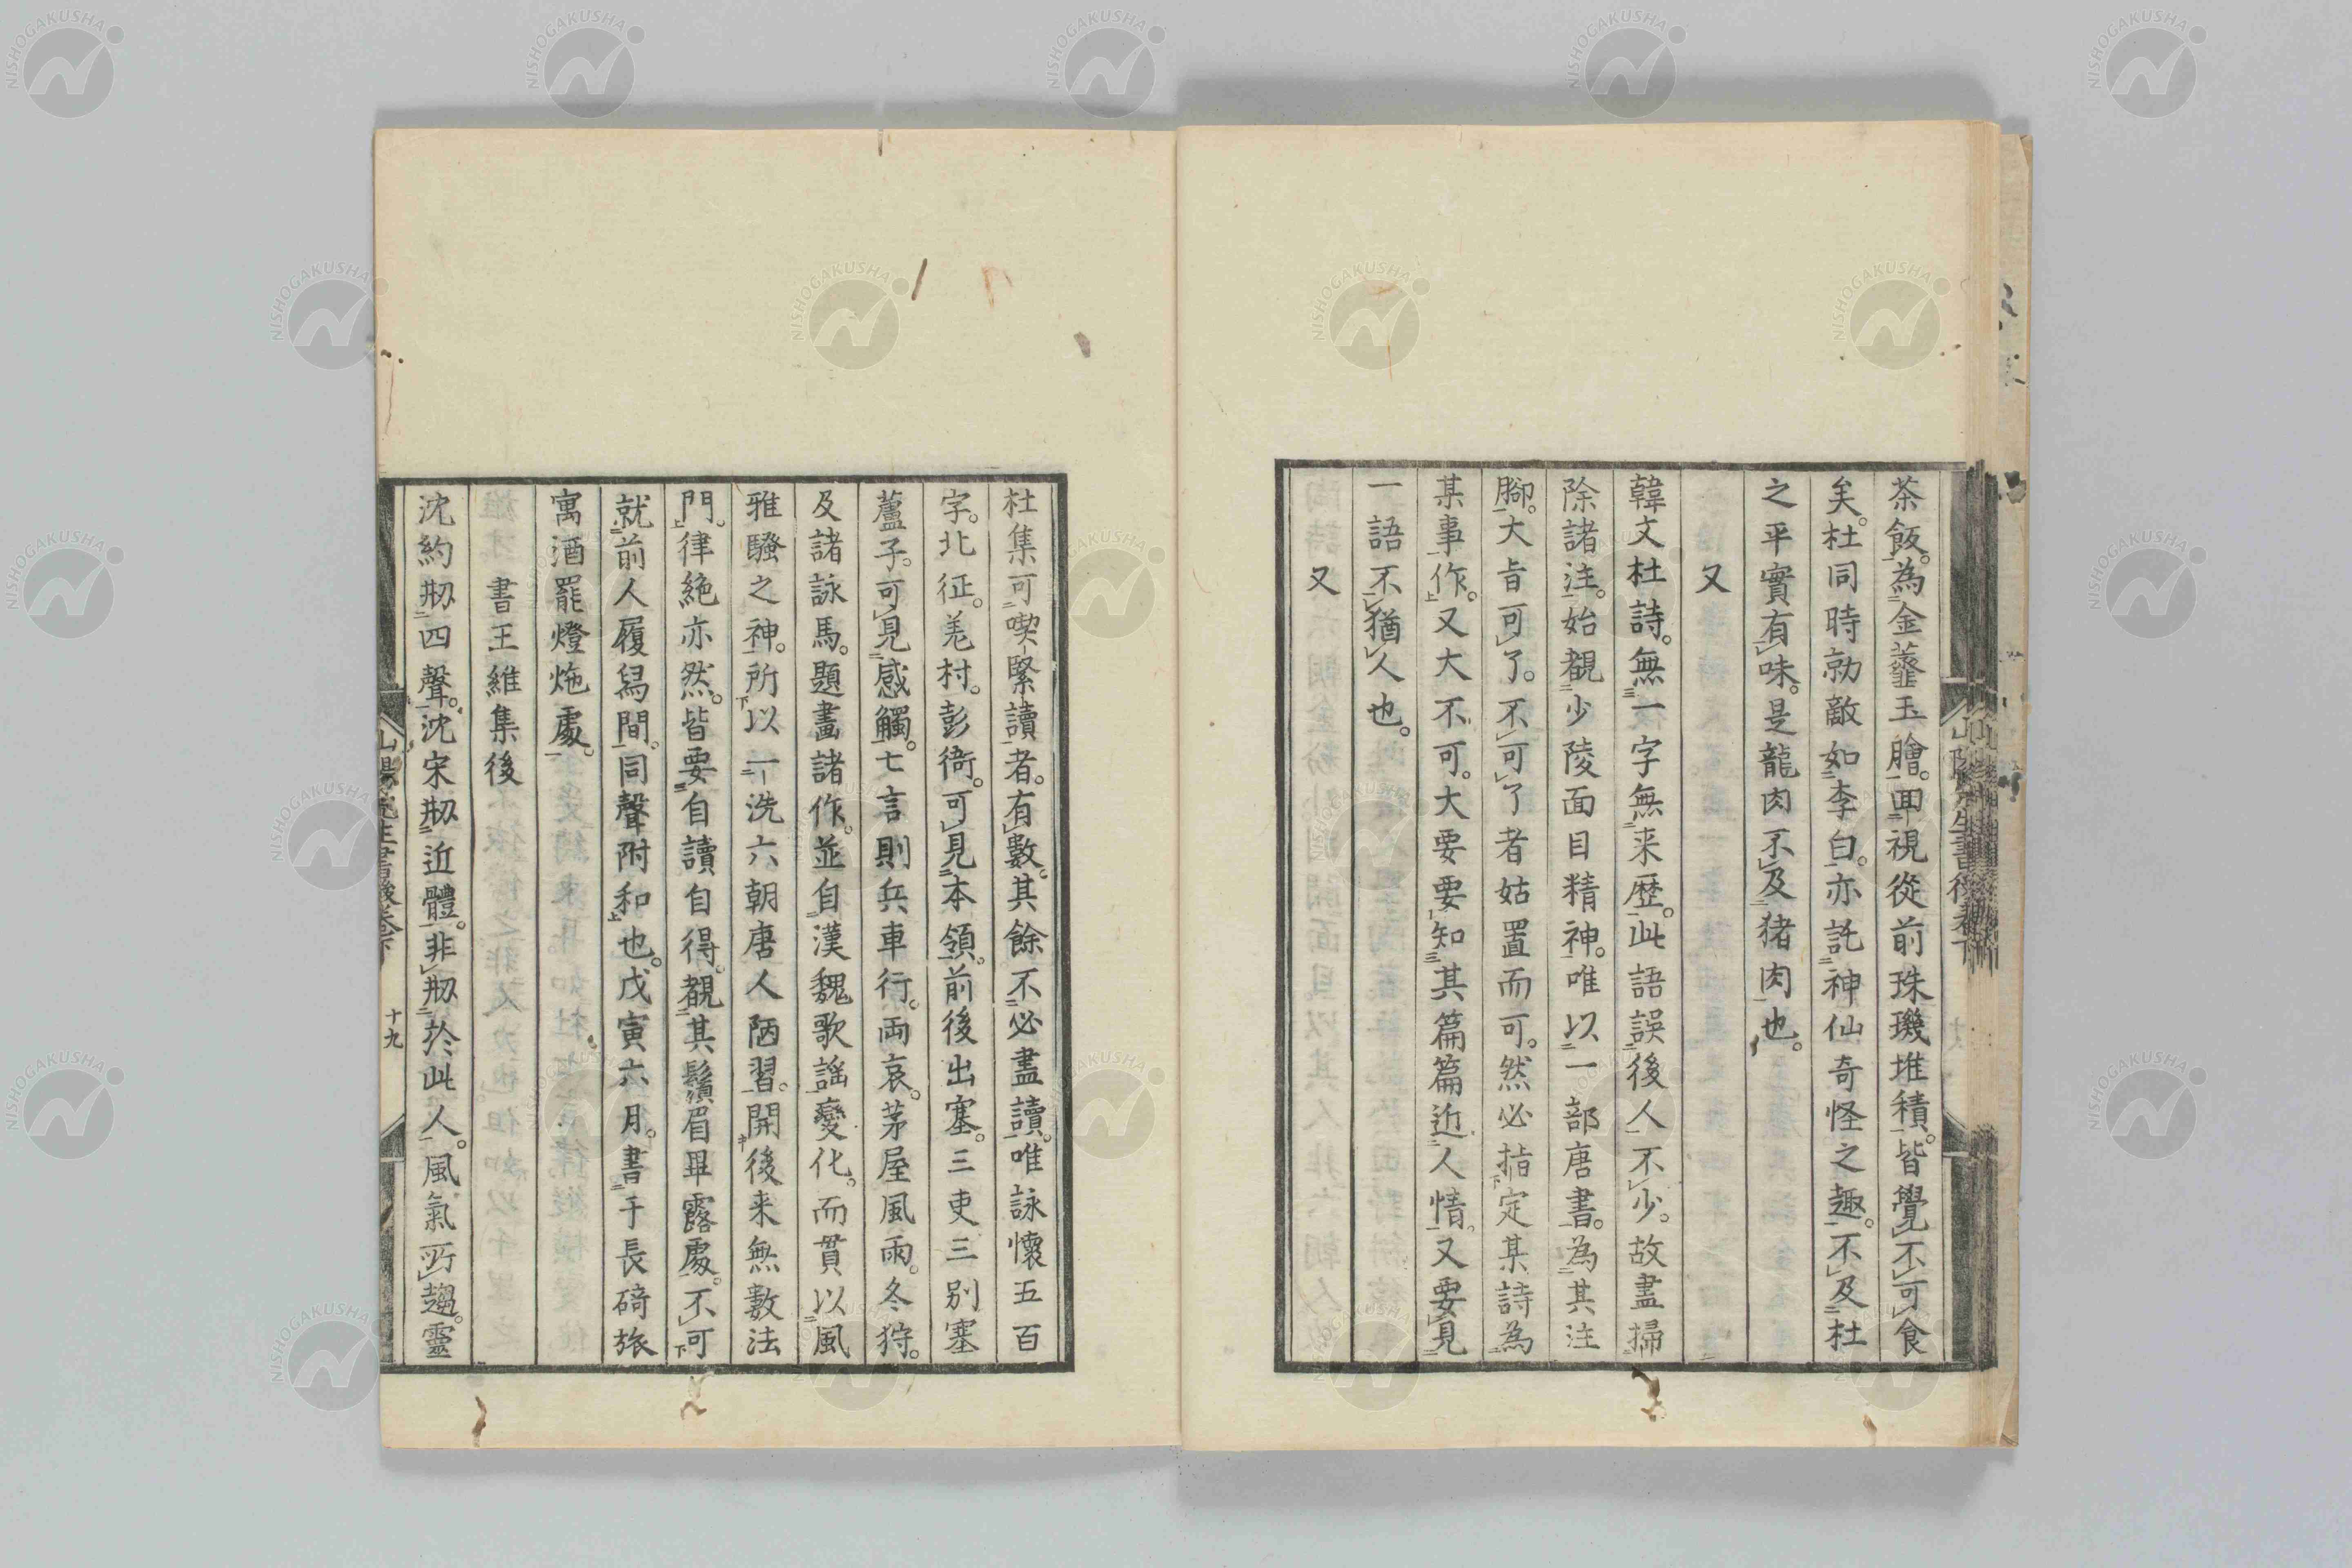 茶飯。為金虀玉膾。回視從前珠璣堆積。皆覺不可食
矣。杜同時勍敵如李白。亦託神仙奇怪之趣。不及杜
之平實有味。是龍肉不及猪肉也。
又
韓文杜詩。無一字無来歴。此語誤後人不少。故盡掃
除諸注。始覩少陵面目精神。唯以一部唐書。為其注
腳。大旨可了。不可了者姑置而可。然必指定某詩為
某事作。又大不可。大要要知其篇篇近人情。又要見
一語不猶人也。
又
杜集可喫緊讀者。有數。其餘不必盡讀。唯詠懷五百
字。北征。羌村。彭衙。可見本領。前後出塞。三吏三别塞
蘆子。可見感觸。七言則兵車行。両哀。茅屋風雨。冬狩。
及諸詠馬。題畫諸作。並自漢魏歌謡變化。而貫以風
雅騷之神。所以一洗六朝唐人陋習。開後来無數法
門。律絶亦然。皆要自讀自得。覩其鬚眉畢露處。不可
就前人履舄間。同聲附和也。戊寅六月。書于長碕旅
寓酒罷燈炧處。
書王維集後
沈約刱四聲。沈宋刱近體。非刱於此人。風氣所趨。靈
山陽先生書後卷下
十九
NISHOGAKUSHA